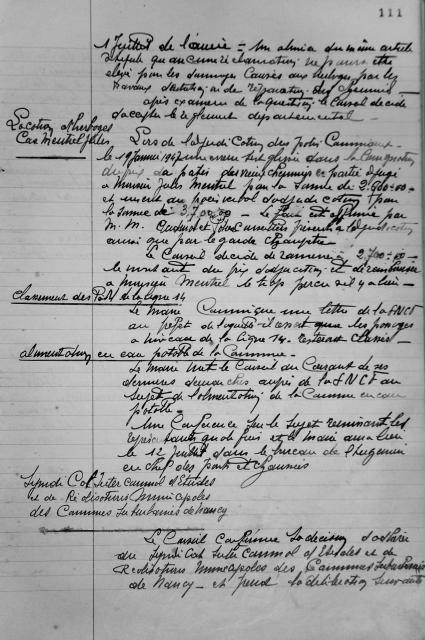 111
1 Juillet de l'année - Un alinéa du même article
stipule qu'aucune réclamation ne pourra être
élevé pour les dommages causés aux herbages par les
travaux d'entretien ou de réparation des chemins
après examen de la question, le Conseil décide
d'accepter le règlement départemental -
Location d'herbages
Cas Mentrel Jules
Lors de l'adjudication des prés communaux
le 19 Janvier 1947 une erreur s'est glissée dans la
du prix. La patis des vieux chemins en partie adjugé
à Monsieur Jules Mentrel par la somme de 2.600=00 -
et inscrit au procès verbal d'adjudication pour
la somme de 3.700,00 - Le fait est affirmé par
M.M. et présents à l'adjudication
ainsi que par le garde champêtre -
Le Conseil décide de ramener à 2.700=00 -
le montant du prix d'adjudication et de rembourser
à Monsieur Mentrel le trop perçu s'il y a lieu -
Classement des P.N de la ligne 14
Le Maire communique une lettre de la SNCF
au sujet de laquelle il ressort que les passages
à niveau de la ligne 14 resteront classés -
alimentation en eau potable de la Commune -
Le Maire met le Conseil au courant de ses
dernières démarches auprès de la SNCF au
sujet de l'alimentation de la Commune en eau
potable -
Une Conférence sur le sujet réunissant les
représentants et le Maire aura lieu
le 12 juillet dans le bureau de l'Ingénieur
en chef des ponts et chaussées
Syndicat Intercommunal d'Etudes
et de Réalisations Municipales
des Communes Suburbaines de Nancy
Le Conseil confirme la décision d'adhérer
au Syndicat Intercommunal d'Etudes et de
Réalisations Municipales des Communes Suburbaines
de Nancy - et prend la délibération suivante